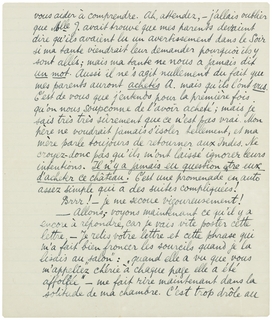 vous aider à comprendre. Ah, attendez, – j'allais oublier
que Mlle J. avait trouvé que mes parents devaient
dire qu'ils avaient lu un avertissement dans le Soir
si ma tante viendrait leur demander pourquoi ils y
sont allés; mais ma tante ne nous a jamais dit
un mot. Aussi il ne s'agit nullement du fait que
mes parents auront achetés A. mais qu'ils l'ont vus.
C'est de vous que j'entends pour la première fois
qu'on nous soupçonne de l'avoir acheté; mais je
sais très très sûrement que ce n'est pas vrai. Mon
père ne voudrait jamais s'isoler tellement, et ma
mère parle toujours de retourner aux Indes. Ne
croyez donc pas qu'ils m'ont laissé ignorer leurs
intentions. Il n'y a jamais eu question chez eux
d'acheter ce château! C'est une promenade en auto
assez simple qui a des suites compliquées!
Brrr! – je me secoue vigoureusement!
– Allons, voyons maintenant ce qu'il y a
encore à répondre, car je vais vite poster cette
lettre. – Je relis votre lettre et cette phrase qui
m'a fait bien froncer les sourcils quand je la
lisais au salon: quand elle a vu que vous
m'appeliez chérie à chaque page elle a été
affolée – me fait rire maintenant dans la
solitude de ma chambre. C'est trop drôle au